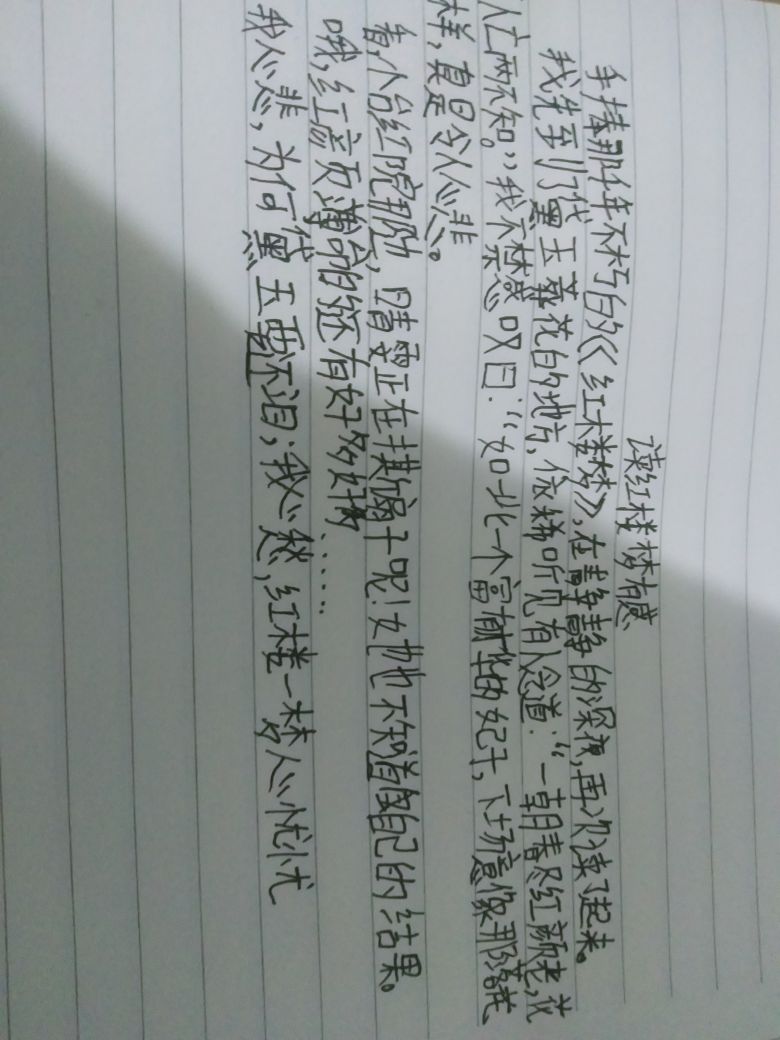 读红楼梦有感
手捧那千年不朽的《红楼梦》,在静静的深夜,再次读了起来。
我先到了代黑玉葬花的地方,依稀听见有人念道:“一朝春尽红颜老,花
人亡两不知。”我不禁感叹曰:“如此一个富有才华的女子,下场竟像那落花
样,真是令人心悲。
看,怡红院那处,晴雯正在撕扇子呢!她也不知道自己的结果。
哦,红颜薄命的还有好多好多……
我心悲,为何代黑玉要还泪;我心愁,红楼一梦人心忧忧